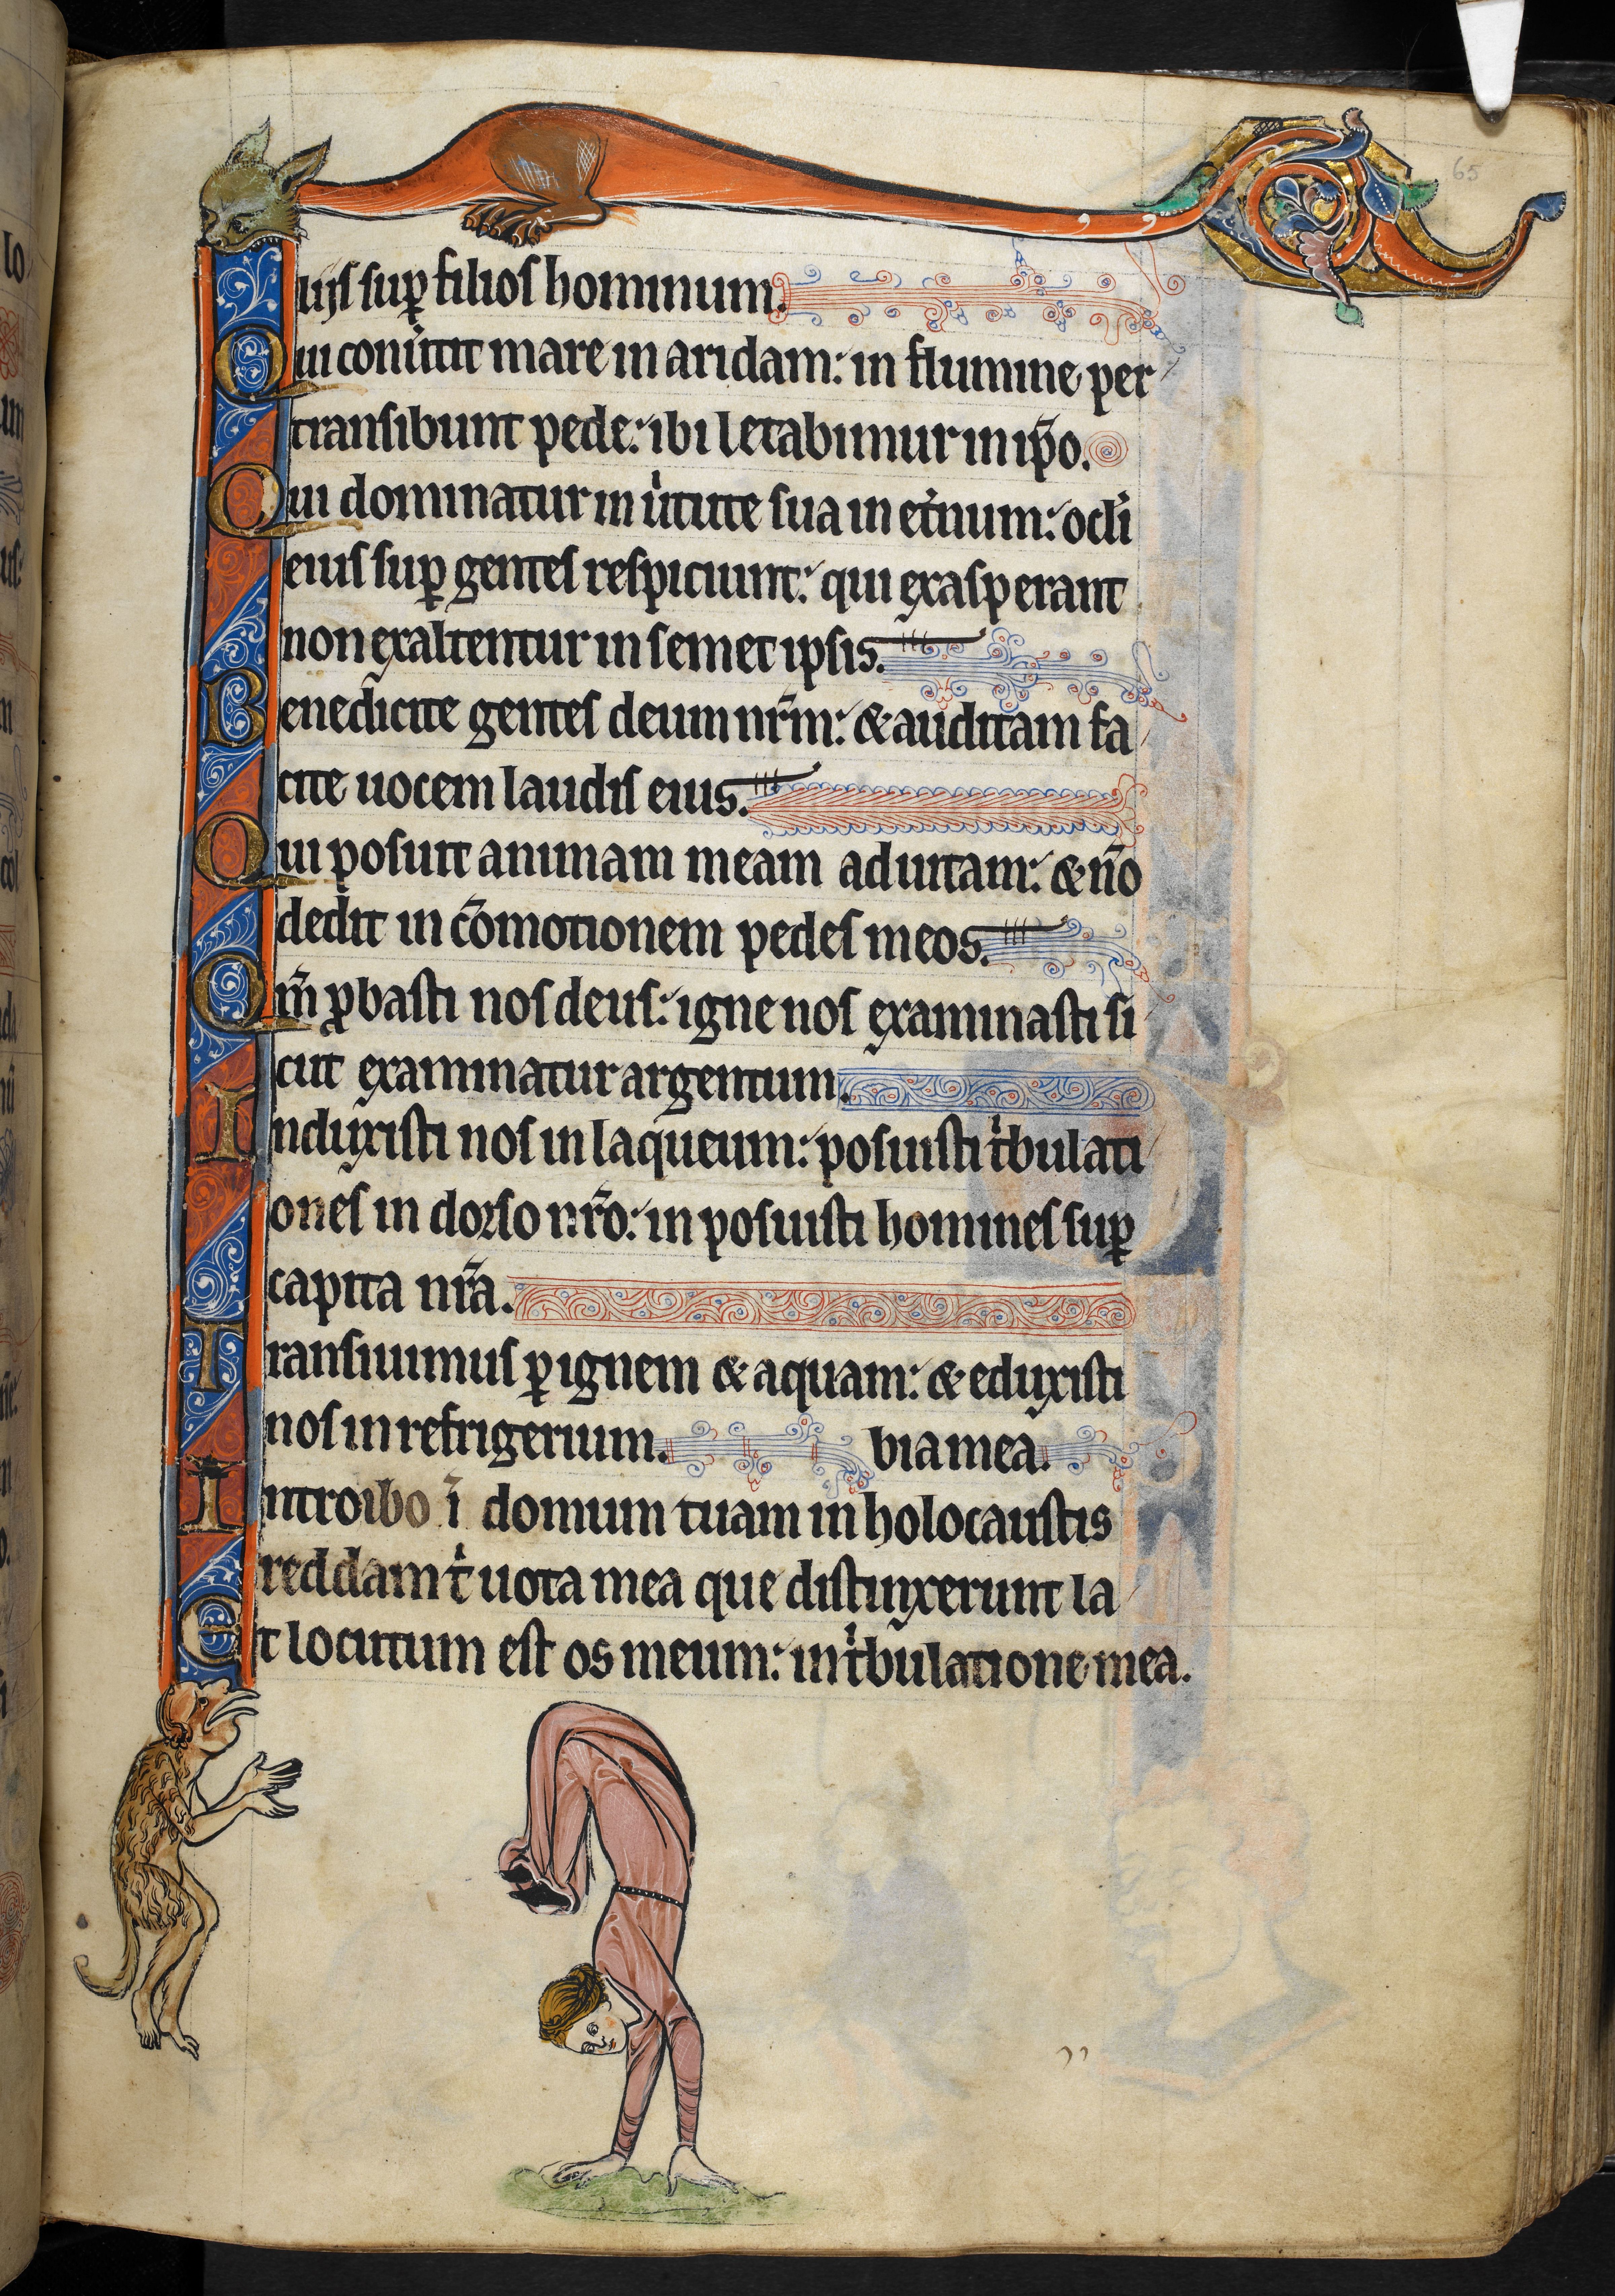 65
liis sup̱ filios hominum.
Qui conu̾tit mare in aridam: in flumine per
transibunt pede: ibi letabimur in ip̄o.
Qui dominatur in u̾tute sua in et̾num: oc̄li
eius sup̱ gentes respiciunt: qui exasperant
non exaltentur in semet ipsis.
Benedicite gentes deum nr̄m: & auditam fa
cite uocem laudis eius.
Qui posuit animam meam ad uitam: & nō
dedit in cōmotionem pedes meos.
Qm̄ ꝓbasti nos deus: igne nos examinasti si
cut examinatur argentum.
Induxisti nos in laqueum: posuisti t̾bulati
ones in dorso nr̄o: inposuisti homines sup̱
capita nr̄a.
Transiuimus ꝑ ignem & aquam: & eduxisti
nos in refrigerium. bia mea.
Introibo ī domum tuam in holocaustis
reddam t̾ uota mea que distinxerunt la
Et locutum est os meum: in t̾bulatione mea.